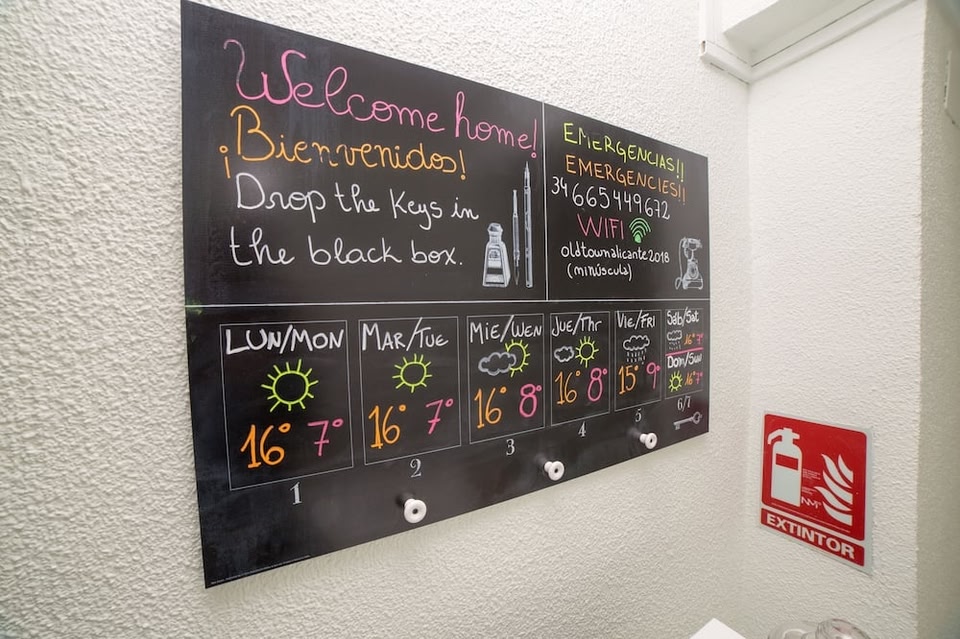 Welcome home!
¡Bienvenidos!
Drop the Keys in
the black box.
EMERGENCIAS!!
EMERGENCIES!!
34 665449672
WIFI
oldtownalicante2018
(minúscula)
LUN/MON
16° 7°
1
Mar/Tue
16° 7°
2
Mie/Wen
16° 8°
3
Jue/Thr
16° 8°
4
Vie/FRI
15° 9°
5
Sáb/Sat
16° 7°
Dom/Sun
16° 7°
6/7
EXTINTOR